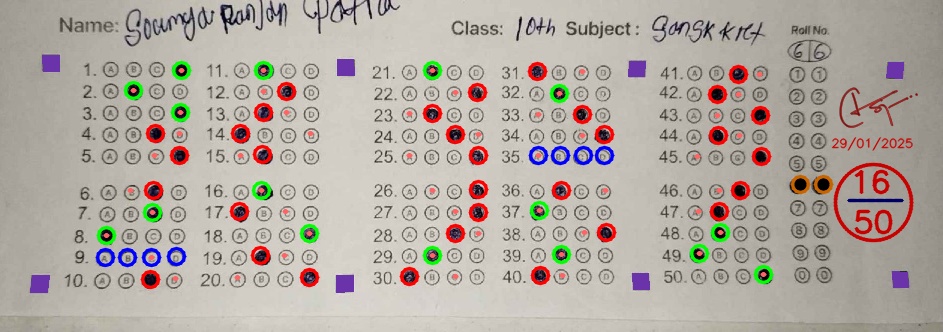 Name: Soumya Ranjan Patra
Class: 10th Subject: Sangskrit
Roll No.
6 6
1. A B C
2. A C D
3. A B C
4. A B
5. A B C
6. A B D
7. A B D
8. B C D
9. A B C D
10. A B D
11. A C D
12. A B D
13. A C D
14. B C D
15. A C D
16. A C D
17. B C D
18. A B C
19. A C D
20. A B C
21. A C D
22. A B C
23. A C D
24. A B D
25. A B C
26. A B C
27. A B C
28. A B D
29. A C D
30. B C D
31. B C D
32. A C D
33. A B D
34. A B C
35. A B C D
36. A C D
37. B C D
38. A B C
39. A C D
40. B C D
41. A B D
42. A C D
43. A B C
44. A C D
45. A B C
46. A B D
47. A C D
48. A C D
49. B C D
50. A B C
1 1
2 2
3 3
4 4
5 5
7 7
8 8
9 9
0 0
29/01/2025
16
50